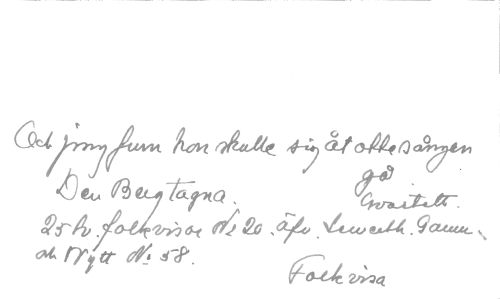 Och jungfrun hon skulle sig åt ottesången
gå
Den Bergtagna.
25 folkvisor No 20. äfv.
och Nytt No 58.
Folkvisa